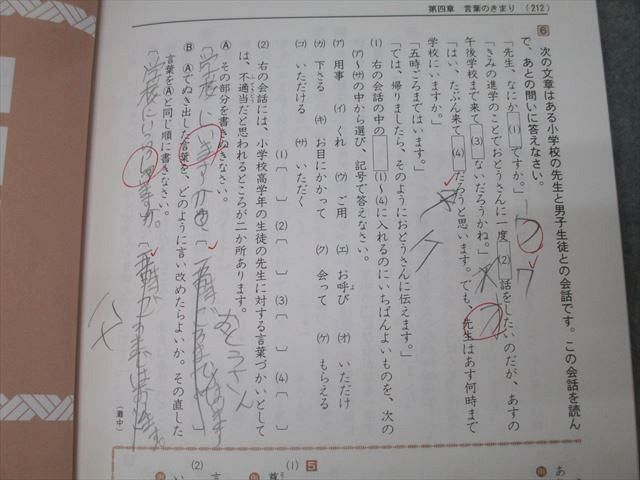 第四章 言葉のきまり (212)
6 次の文章はある小学校の先生と男子生徒との会話です。この会話を読ん
で、あとの問いに答えなさい。
「先生、なにか(1)ですか。」
「きみの進学のことでおとうさんに一度(2)話をしたいのだが、あすの
午後学校まで来て(3)ないだろうかね。」
「はい、たぶん来て(4)だろうと思います。でも、先生はあす何時まで
学校にいますか。」
「五時ごろまではいます。」
「では、帰りましたら、そのようにおとうさんに伝えます。」
(1) 右の会話の中の□(1)~(4)に入れるのにいちばんよいものを、次の
(ア)~(サ)の中から選び、記号で答えなさい。
(ア) 用事 (イ) くれ (ウ) ご用 (エ) お呼び (オ) いただけ
(カ) 下さる (キ) お目にかかって (ク) 会って (ケ) もらえる
(コ) いただける (サ) いただく
(1)〔 〕 (2)〔 〕 (3)〔 〕 (4)〔 〕
(2) 右の会話には、小学校高学年の生徒の先生に対する言葉づかいとして
は、不適当だと思われるところが二か所あります。
Ⓐ その部分を書きぬきなさい。
Ⓑ Ⓐでぬき出した言葉を、どのように言い改めたらよいか。その直した
言葉をⒶと同じ順に書きなさい。
(灘中)
ウ
ケ
おとうさん
5
(1)
(2)